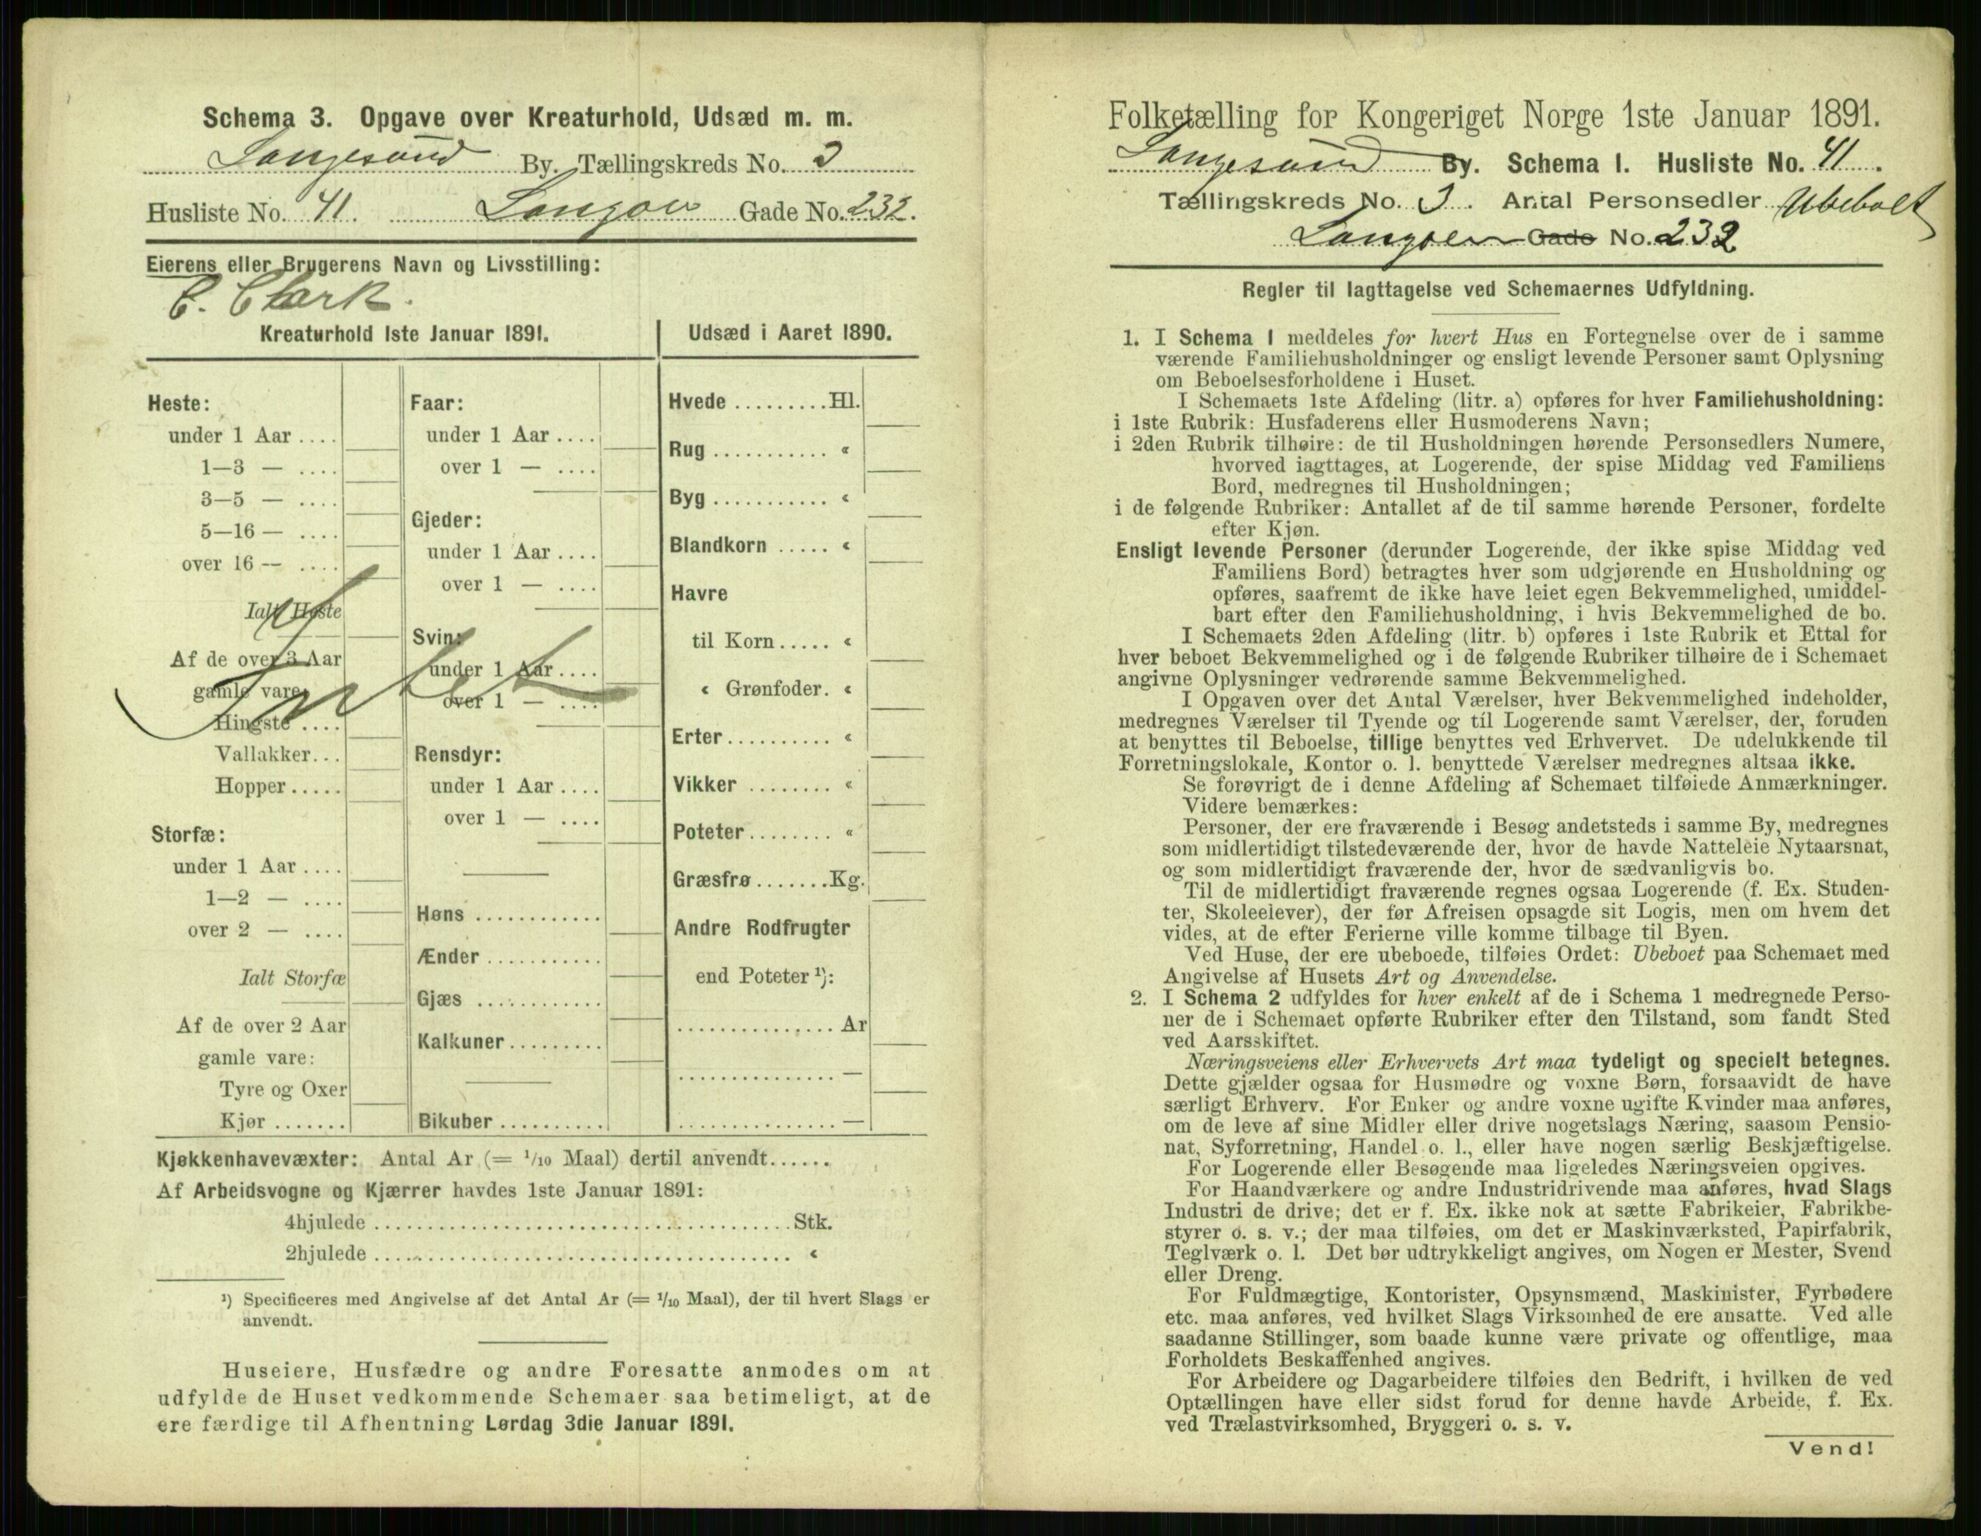 Schema 3. Opgave over Kreaturhold, Udsæd m. m.
Langesund By. Tællingskreds No. 3
Husliste No. 41. Langøen Gade No. 232.
Eierens eller Brugerens Navn og Livsstilling:
C. Clark.
Kreaturhold 1ste Januar 1891.
Heste:
under 1 Aar ....
1—3 — ....
3—5 — ....
5—16 — ....
over 16 — ....
Ialt Heste
Af de over 3 Aar
gamle vare:
Hingste ....
Vallakker...
Hopper.....
Storfæ:
under 1 Aar ....
1—2 — ....
over 2 — ....
Ialt Storfæ
Af de over 2 Aar
gamle vare:
Tyre og Oxer
Kjør .......
Faar:
under 1 Aar ....
over 1 — ....
Gjeder:
under 1 Aar ....
over 1 — ....
Svin:
under 1 Aar ....
over 1 — ....
Rensdyr:
under 1 Aar ....
over 1 — ....
Høns ............
Ænder ...........
Gjæs ............
Kalkuner.........
Bikuber ..........
Udsæd i Aaret 1890.
Hvede .........Hl.
Rug ........... «
Byg ........... «
Blandkorn ..... «
Havre
til Korn..... «
« Grønfoder. «
Erter.......... «
Vikker ........ «
Poteter........ «
Græsfrø .......Kg.
Andre Rodfrugter
end Poteter ¹):
............... Ar
............... —
............... —
Kjøkkenhavevæxter: Antal Ar (= 1/10 Maal) dertil anvendt......
Af Arbeidsvogne og Kjærrer havdes 1ste Januar 1891:
4hjulede ........................................ Stk.
2hjulede ........................................ «
¹) Specificeres med Angivelse af det Antal Ar (= 1/10 Maal), der til hvert Slags er
anvendt.
Huseiere, Husfædre og andre Foresatte anmodes om at
udfylde de Huset vedkommende Schemaer saa betimeligt, at de
ere færdige til Afhentning Lørdag 3die Januar 1891.
Folketælling for Kongeriget Norge 1ste Januar 1891.
Langesund By. Schema 1. Husliste No. 41.
Tællingskreds No. 3. Antal Personsedler Ubeboet
Langøen Gade No. 232
Regler til Iagttagelse ved Schemaernes Udfyldning.
1. I Schema 1 meddeles for hvert Hus en Fortegnelse over de i samme
værende Familiehusholdninger og ensligt levende Personer samt Oplysning
om Beboelsesforholdene i Huset.
I Schemaets 1ste Afdeling (litr. a) opføres for hver Familiehusholdning:
i 1ste Rubrik: Husfaderens eller Husmoderens Navn;
i 2den Rubrik tilhøire: de til Husholdningen hørende Personsedlers Numere,
hvorved iagttages, at Logerende, der spise Middag ved Familiens
Bord, medregnes til Husholdningen;
i de følgende Rubriker: Antallet af de til samme hørende Personer, fordelte
efter Kjøn.
Ensligt levende Personer (derunder Logerende, der ikke spise Middag ved
Familiens Bord) betragtes hver som udgjørende en Husholdning og
opføres, saafremt de ikke have leiet egen Bekvemmelighed, umiddel-
bart efter den Familiehusholdning, i hvis Bekvemmelighed de bo.
I Schemaets 2den Afdeling (litr. b) opføres i 1ste Rubrik et Ettal for
hver beboet Bekvemmelighed og i de følgende Rubriker tilhøire de i Schemaet
angivne Oplysninger vedrørende samme Bekvemmelighed.
I Opgaven over det Antal Værelser, hver Bekvemmelighed indeholder,
medregnes Værelser til Tyende og til Logerende samt Værelser, der, foruden
at benyttes til Beboelse, tillige benyttes ved Erhvervet. De udelukkende til
Forretningslokale, Kontor o. l. benyttede Værelser medregnes altsaa ikke.
Se forøvrigt de i denne Afdeling af Schemaet tilføiede Anmærkninger.
Videre bemærkes:
Personer, der ere fraværende i Besøg andetsteds i samme By, medregnes
som midlertidigt tilstedeværende der, hvor de havde Natteleie Nytaarsnat,
og som midlertidigt fraværende der, hvor de sædvanligvis bo.
Til de midlertidigt fraværende regnes ogsaa Logerende (f. Ex. Studen-
ter, Skoleelever), der før Afreisen opsagde sit Logis, men om hvem det
vides, at de efter Ferierne ville komme tilbage til Byen.
Ved Huse, der ere ubeboede, tilføies Ordet: Ubeboet paa Schemaet med
Angivelse af Husets Art og Anvendelse.
2. I Schema 2 udfyldes for hver enkelt af de i Schema 1 medregnede Perso-
ner de i Schemaet opførte Rubriker efter den Tilstand, som fandt Sted
ved Aarsskiftet.
Næringsveiens eller Erhvervets Art maa tydeligt og specielt betegnes.
Dette gjælder ogsaa for Husmødre og voxne Børn, forsaavidt de have
særligt Erhverv. For Enker og andre voxne ugifte Kvinder maa anføres,
om de leve af sine Midler eller drive nogetslags Næring, saasom Pensio-
nat, Syforretning, Handel o. l., eller have nogen særlig Beskjæftigelse.
For Logerende eller Besøgende maa ligeledes Næringsveien opgives.
For Haandværkere og andre Industridrivende maa anføres, hvad Slags
Industri de drive; det er f. Ex. ikke nok at sætte Fabrikeier, Fabrikbe-
styrer o. s. v.; der maa tilføies, om det er Maskinværksted, Papirfabrik,
Teglværk o. l. Det bør udtrykkeligt angives, om Nogen er Mester, Svend
eller Dreng.
For Fuldmægtige, Kontorister, Opsynsmænd, Maskinister, Fyrbødere
etc. maa anføres, ved hvilket Slags Virksomhed de ere ansatte. Ved alle
saadanne Stillinger, som baade kunne være private og offentlige, maa
Forholdets Beskaffenhed angives.
For Arbeidere og Dagarbeidere tilføies den Bedrift, i hvilken de ved
Optællingen have eller sidst forud for denne havde Arbeide, f. Ex.
ved Trælastvirksomhed, Bryggeri o. s. v.
Vend!